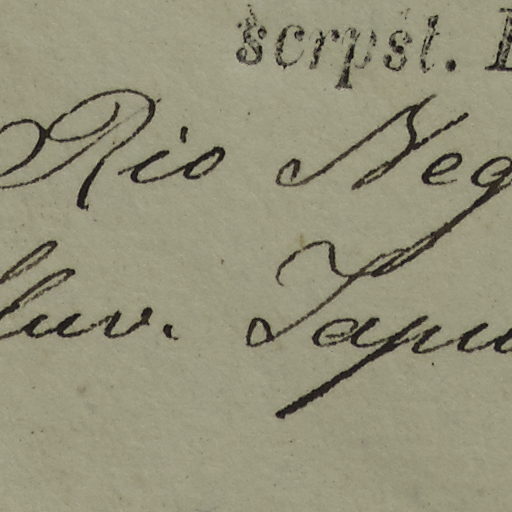 scrpst.
Rio Neg
fluv. Tapu